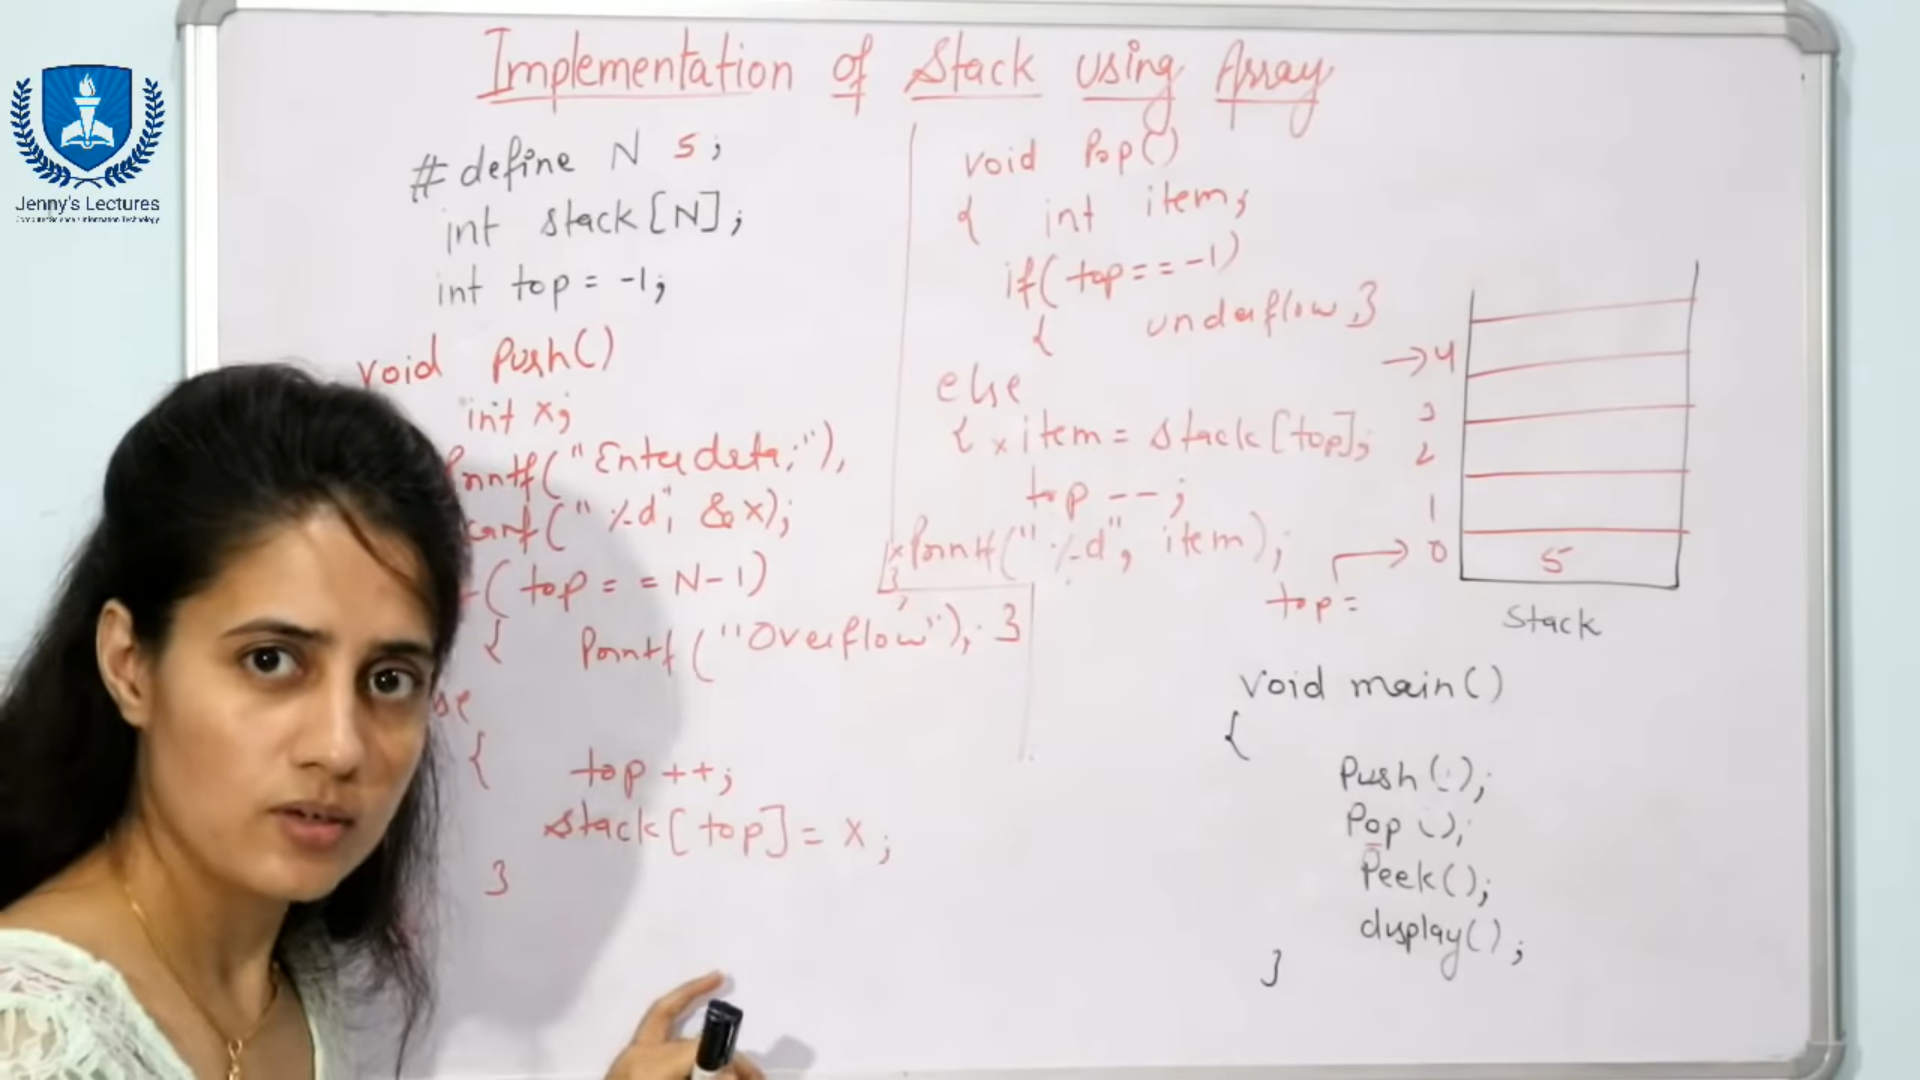 Jenny's Lectures
Computer Science & Information Technology
Implementation of Stack using Array
#define N 5;
int stack[N];
int top = -1;
void Push()
int x;
printf("Enter data:");
canf("%d", &x);
(top == N-1)
{ Printf("Overflow"); }
se
{ top ++;
stack[top] = x;
}
void Pop()
{ int item;
if(top == -1)
{ underflow }
else
{ item = stack[top];
top --;
Printf("%d", item);
}
→ 4
3
2
1
0 5
top =
Stack
void main()
{
Push();
Pop();
Peek();
display();
}